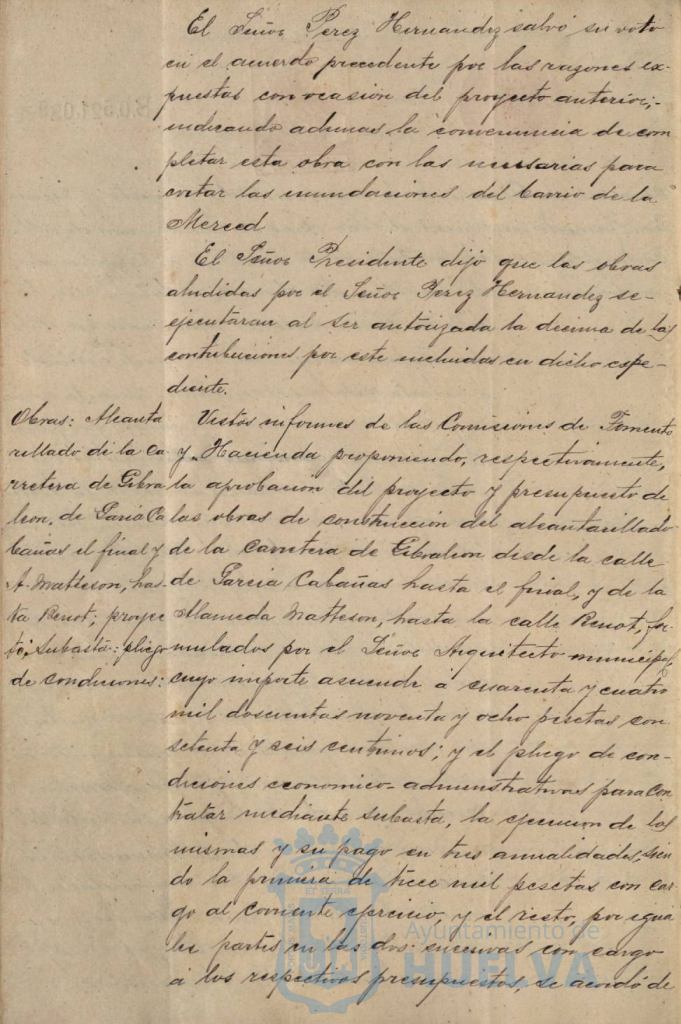 El Señor Perez Hernandez salvó su voto
en el acuerdo precedente por las razones ex-
puestas con ocasión del proyecto anterior;-
indicando ademas la conveniencia de com
pletar esta obra con las necesarias para
evitar las inundaciones del barrio de la
Merced
El Señor Presidente dijo que las obras
aludidas por el Señor Perez Hernandez se-
ejecutaran al ser autorizada la decima de las
contribuciones por este incluidas en dicho espe-
diente.
Obras: Alcanta
rillado de la Ca-
rretera de Gibra
leon, de Garcia Ca
bañas el final y
A. Matheson, has-
ta Renot; proyec
to: Subasta: pliego
de condiciones:
Vistos informes de las Comisiones de Fomento
y Hacienda proponiendo, respectivamente,
la aprobacion del proyecto y presupuesto de
las obras de construcción del alcantarillado
de la Carretera de Gibraleon desde la calle
de Garcia Cabañas hasta el final, y de la
Alameda Matheson, hasta la calle Renot, for
mulados por el Señor Arquitecto municipal
cuyo importe asciende á cuarenta y cuatro
mil doscientas noventa y ocho pesetas con
setenta y seis centimos; y el pliego de con-
diciones economico-administrativas para Con
tratar mediante subasta, la ejecucion de las
mismas y su pago en tres anualidades, sien
do la primera de trece mil pesetas con car
go al corriente ejercicio, y el resto, por igua
les partes en las dos sucesivas con cargo
á los respectivos presupuestos, se acordó de
Ayuntamiento de
HUELVA